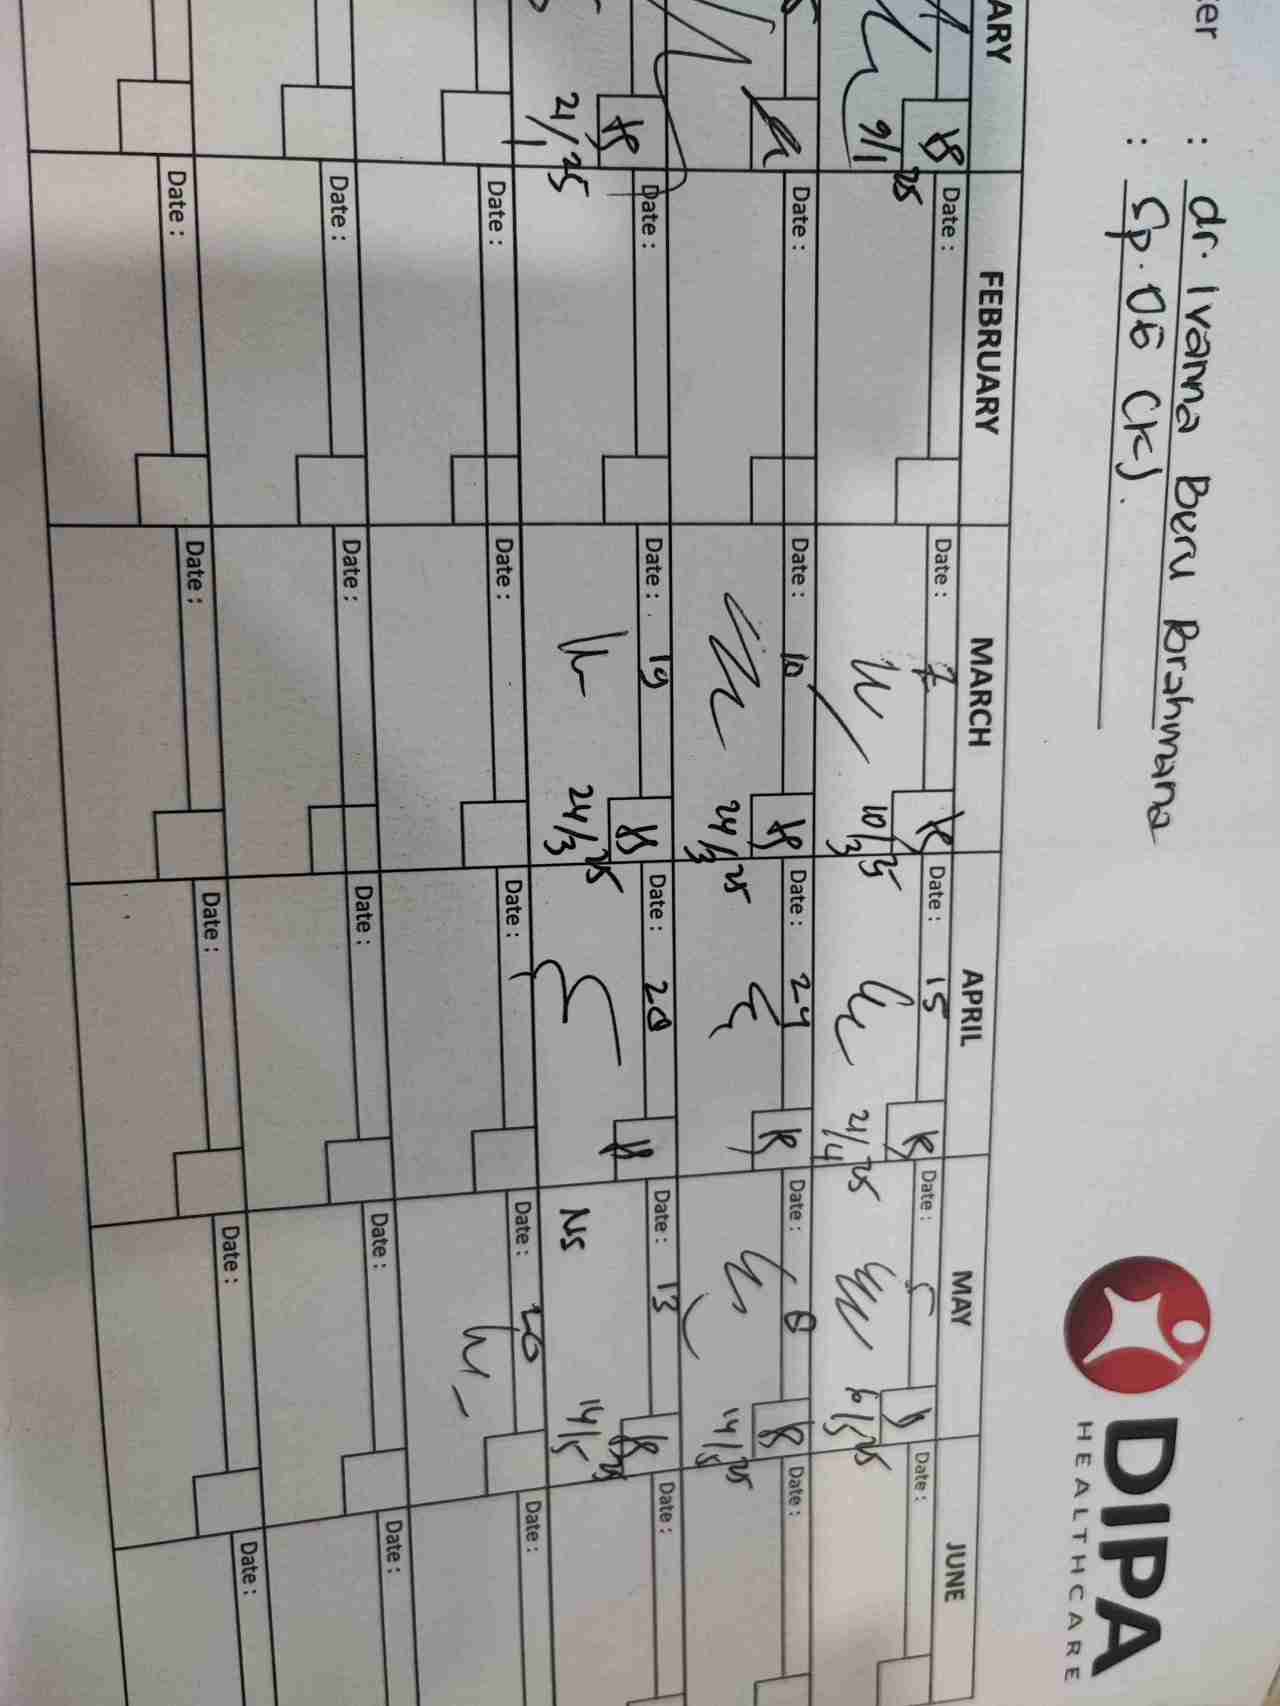 DIPA
HEALTHCARE
er : dr. Ivanna Beru Brahmana
: Sp. OG CKS.
ARY FEBRUARY MARCH APRIL MAY JUNE
Date : Date : 7 Date : 15 Date : 5 Date :
9/1 25 10/3 25 21/4 25 6/5 25
Date : Date : 10 Date : 24 Date : 8 Date :
24/3 25 14/5 25
Date : Date : 19 Date : 28 Date : 13 Date :
NS
21/1 25 24/3 25 14/5 25
Date : Date : Date : Date : 20 Date :
Date : Date : Date : Date : Date :
Date : Date : Date : Date : Date :